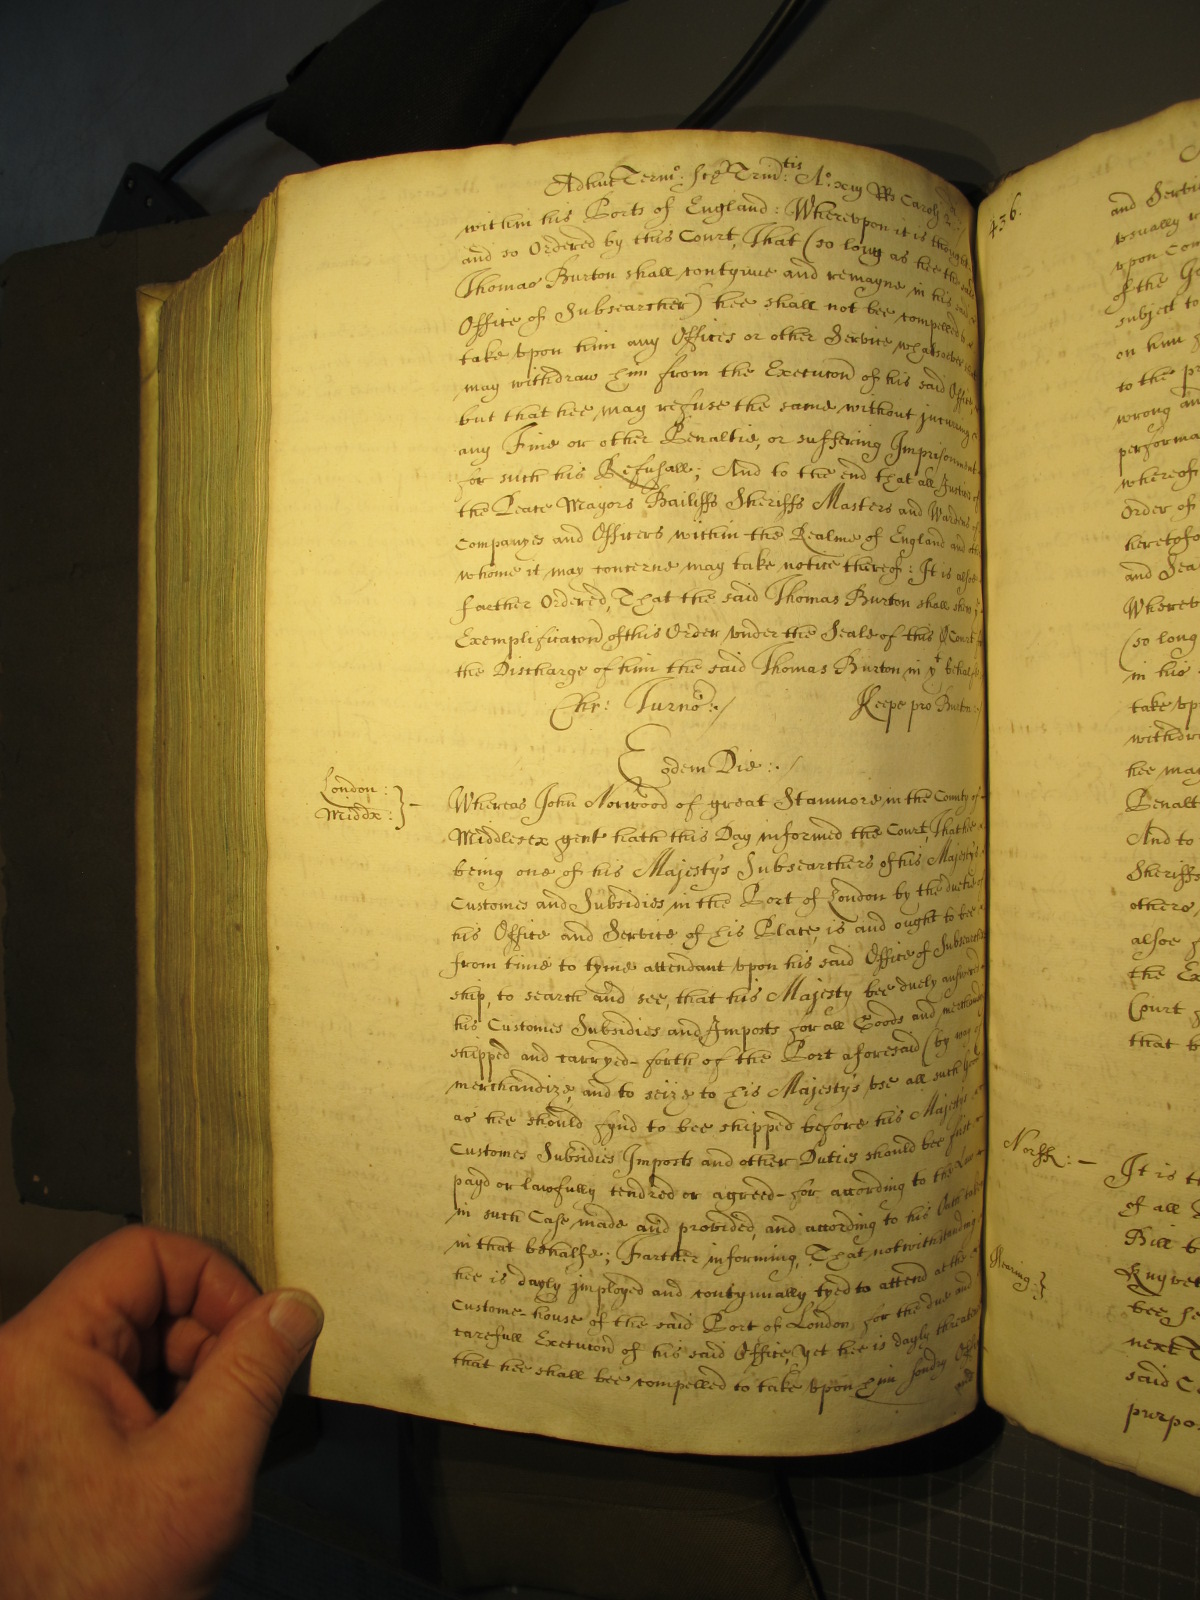 Adhuc Term: Sce Trin:tis Ao: xiij Rs Caroli 2.
within his Ports of England: Wherevpon it is thought
and so Ordered by this Court, That (so long as hee the said
Thomas Burton shall contynue and remayne in his said
Office of Subsearcher) hee shall not bee compelled to
take vpon him any Offices or other Service whatsoever
may withdraw him from the Execucon of his said Office,
but that hee may refuse the same without incurring
any Fine or other Penaltie, or suffering Imprisonment
for such his Refusall; And to the end that all Justices of
the Peace Mayors Bailiffs Sheriffs Masters and Wardens of
Companyes and Officers within the Realme of England and
whome it may concerne may take notice thereof: It is alsoe
farther Ordered, That the said Thomas Burton shall
Exemplificacon of this Order vnder the Seale of this Court
the Discharge of him the said Thomas Burton in yt behalfe
Chr: Turnor:/
Keepe pro Burton:
Eodem Die:./
London:
Middx:
Whereas John Norwood of great Stanmore in the County of
Middlesex gent hath this Day informed the Court, That hee
being one of his Majesty's Subsearchers of his Majesty's
Customes and Subsidies in the Port of London by the duetie of
his Office and Service of his Place, is and ought to bee
from time to tyme attendant vpon his said Office of Subsearcher
ship, to search and see, that his Majesty bee duely answered
his Customes Subsidies and Imposts for all Goods and merchandize
shipped and carryed forth of the Port aforesaid (by way of
merchandize, and to seize to his Majesty's vse all such Goods
as hee should fynd to bee shipped before his Majesty's
Customes Subsidies Imposts and other Duties should bee first
payd or lawfully tendred or agreed for according to the Law
in such Case made and provided, and according to his Oath
in that behalfe; Farther informing, That notwithstanding
hee is dayly imployed and contynually tyed to attend at the
Custome-house of the said Port of London, for the due and
carefull Execucon of his said Office, Yet hee is dayly threatned
that hee shall bee compelled to take vpon him sondry Offices
and
436.
and Servi
vsually
vpon Com
of the
subject to
on him
to the pr
wrong an
performa
whereof
Order of
heretofo
and Sea
Wherev
(so long
in his
take vp
withdra
hee may
Penalt
And to
Sheriffs
others
alsoe f
the Ex
Court f
that b
Norff:
It is th
of all
Bill b
Hearing.
Knyvet
bee he
next T
said C
purpo